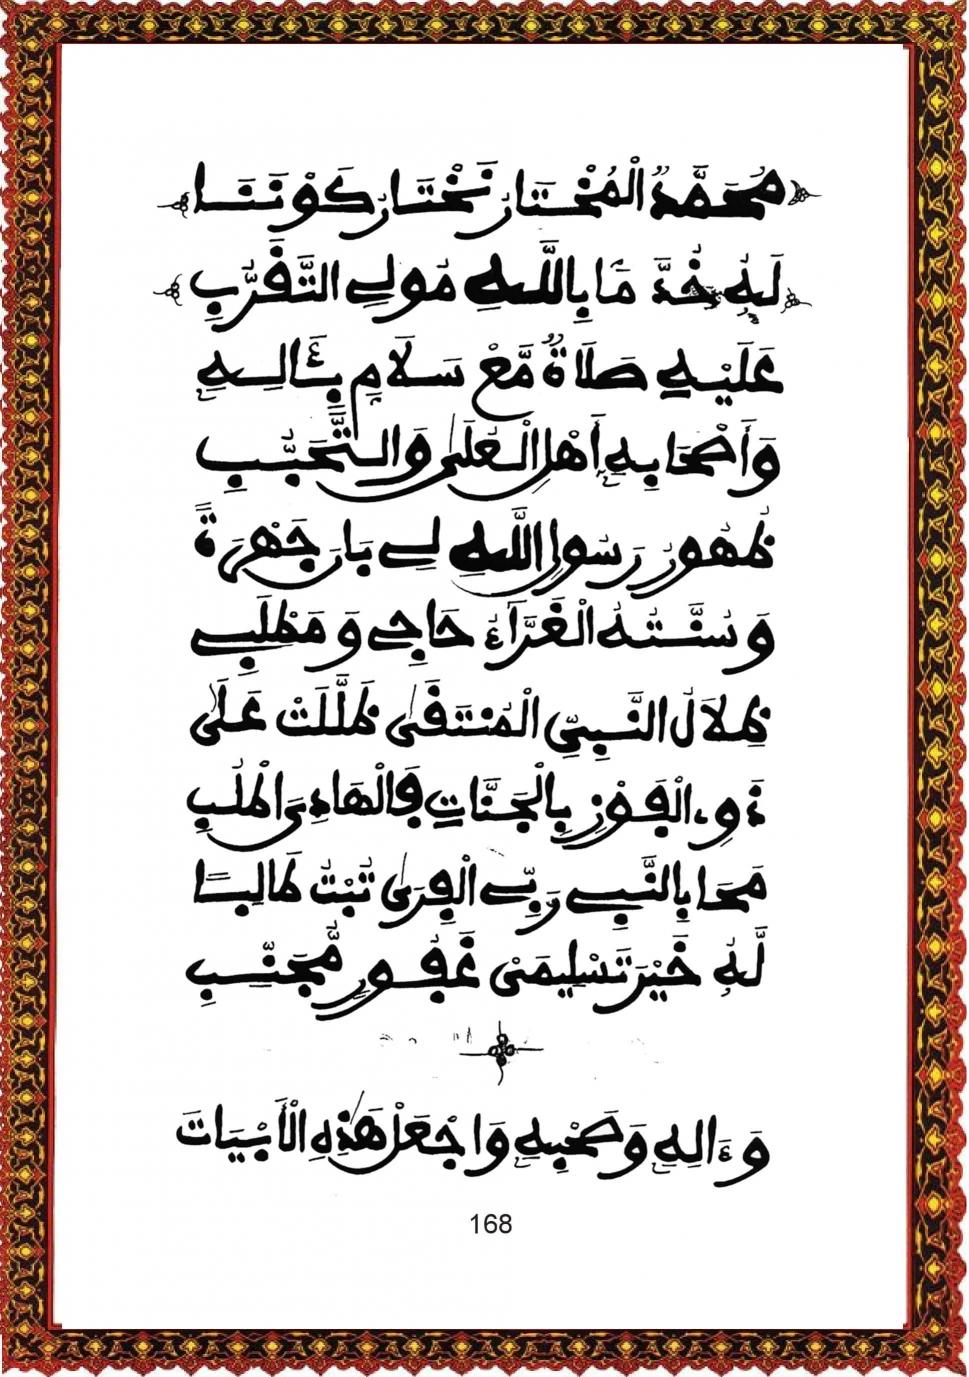 مُحَمَّدٌ الْمُخْتَارُ نَخْتَارُ كَوْنَنَا
لَهُ خُدَّمًا بِاللَّهِ مُولِي التَّقَرُّبِ
عَلَيْهِ صَلَاةٌ مَّعْ سَلَامٍ بِـَٔالِهِ
وَأَصْحَابِهِ أَهْلِ الْعُلَى وَالتَّحَبُّبِ
ظُهُورُ رَسُولِ اللَّهِ لِي بَانَ جَهْرَةً
وَسُنَّتُهُ الْغَرَّاءُ حَاجِي وَمَطْلَبِي
ظِلَالُ النَّبِيِّ الْمُنْتَقَى ظَلَّلَتْ عَلَى
ذَوِى الْفَوْزِ بِالْجَنَّاتِ فَالْهَادِىَ اطْلُبِ
مَحَا بِالنَّبِي رَبِّي الْفِرَى تُبْتُ طَالِبًا
لَّهُ خَيْرَ تَسْلِيمَىْ غَفُورٍ مُّجَنِّبِ
وَءَالِهِ وَصَحْبِهِ وَاجْعَلْ هَذِهِ الْأَبْيَاتَ
168